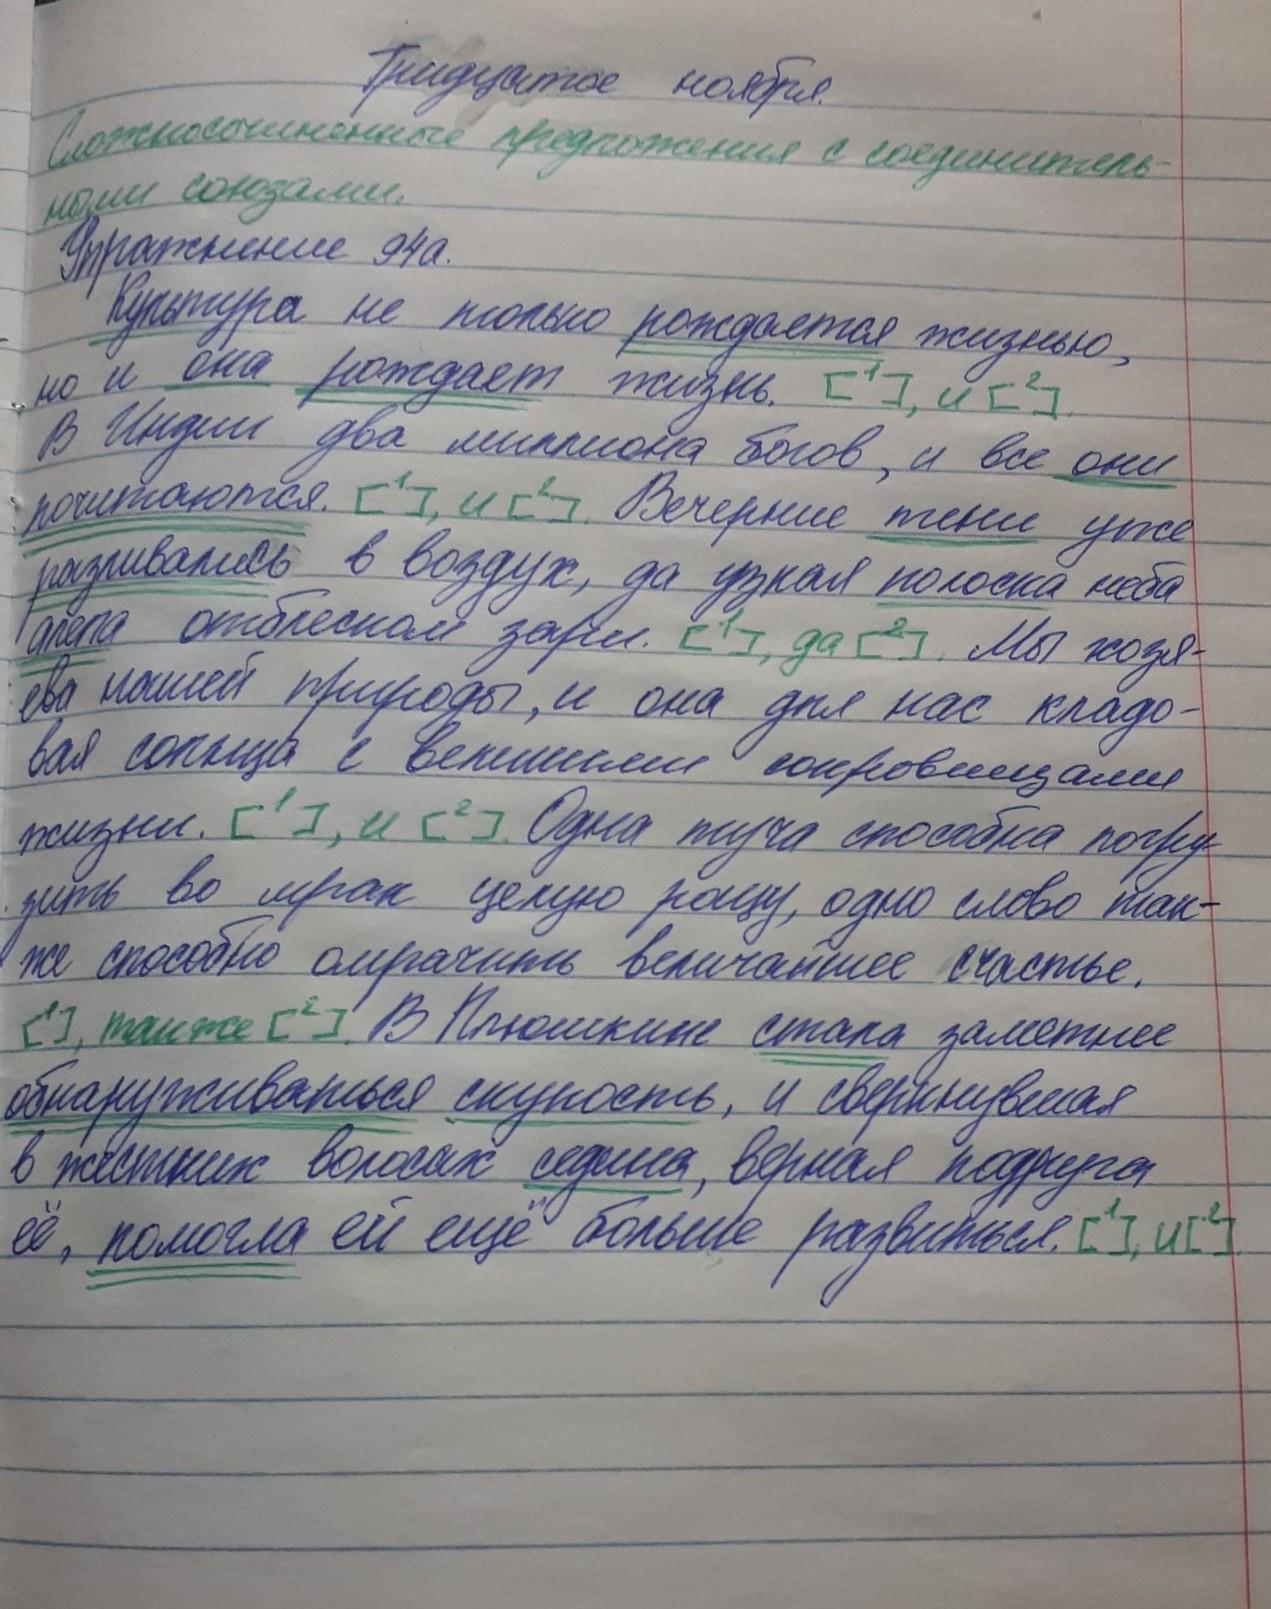 Тридцатое ноября.
Сложносочиненные предложения с соединитель-
ными союзами.
Упражнение 94а.
Культура не только рождается жизнью,
но и она рождает жизнь. [¹], и [²].
В Индии два миллиона богов, и все они
почитаются. [¹], и [²]. Вечерние тени уже
разливались в воздух, да узкая полоска неба
алела отблеском зари. [¹], да [²]. Мы хозя-
ева нашей природы, и она для нас кладо-
вая солнца с великими сокровищами
жизни. [¹], и [²]. Одна туча способна погру-
зить во мрак целую рощу, одно слово так-
же способно омрачить величайшее счастье.
[¹], также [²]. В Плюшкине стала заметнее
обнаруживаться скупость, и сверкнувшая
в жестких волосах седина, верная подруга
её, помогла ей ещё больше развиться. [¹], и [²].